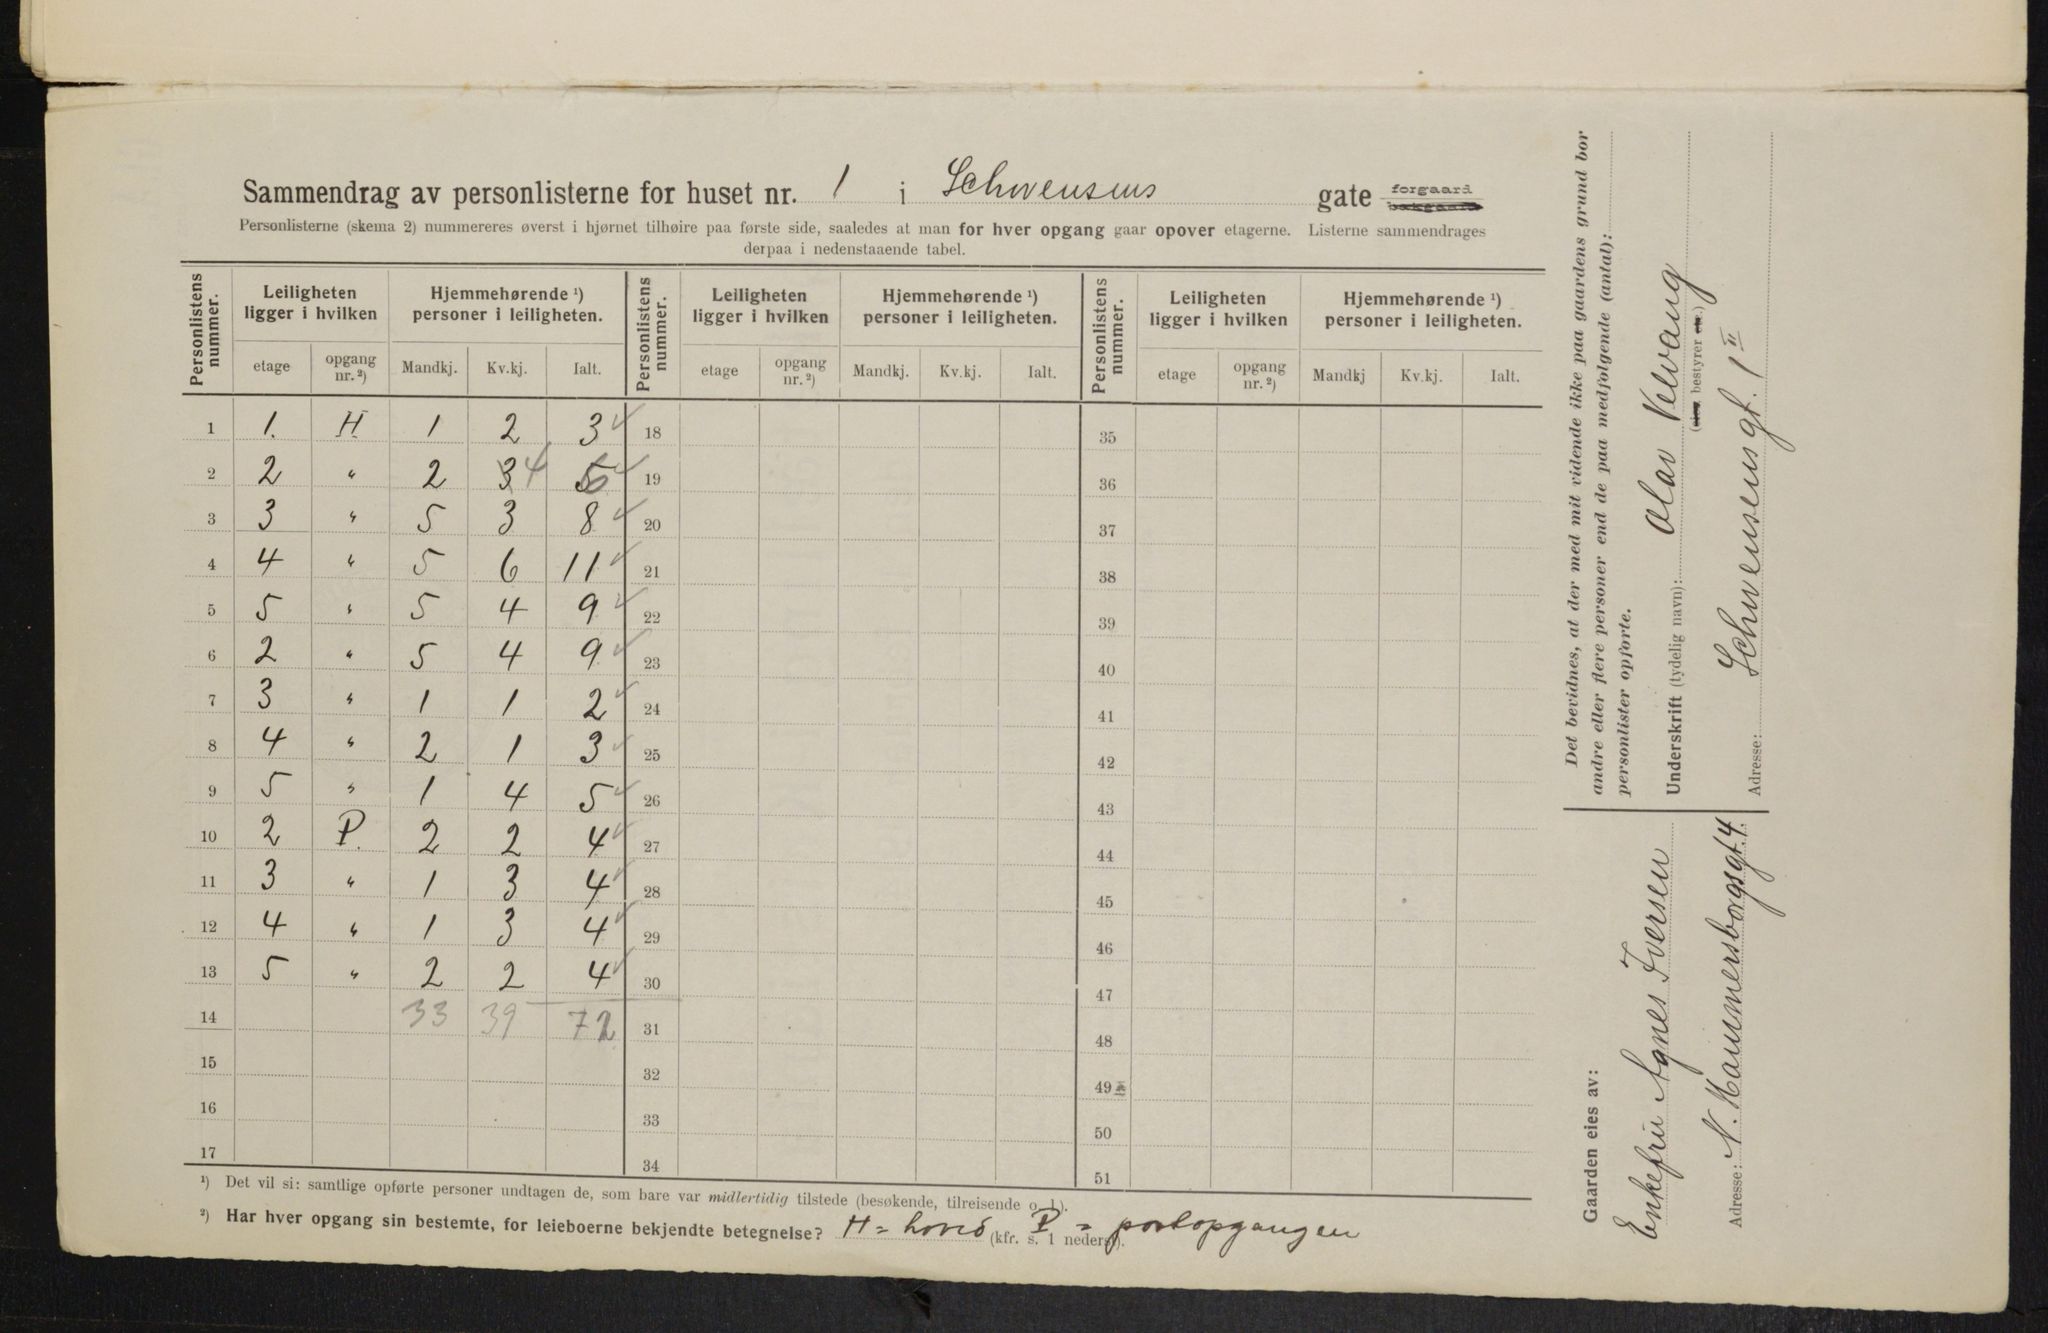 Sammendrag av personlisterne for huset nr. 1 i Schwensens gate forgaard
Personlisterne (skema 2) nummereres øverst i hjørnet tilhøire paa første side, saaledes at man for hver opgang gaar opover etagerne. Listerne sammendrages
derpaa i nedenstaaende tabel.
Personlistens nummer. Leiligheten ligger i hvilken Hjemmehørende ¹) personer i leiligheten. Personlistens nummer. Leiligheten ligger i hvilken Hjemmehørende ¹) personer i leiligheten. Personlistens nummer. Leiligheten ligger i hvilken Hjemmehørende ¹) personer i leiligheten.
etage opgang nr. ²) Mandkj. Kv.kj. Ialt. etage opgang nr. ²) Mandkj. Kv.kj. Ialt. etage opgang nr. ²) Mandkj Kv.kj. Ialt.
1 1. H 1 2 3 ✓ 18 35
2 2 " 2 3 4 5 6 ✓ 19 36
3 3 " 5 3 8 ✓ 20 37
4 4 " 5 6 11 ✓ 21 38
5 5 " 5 4 9 ✓ 22 39
6 2 " 5 4 9 ✓ 23 40
7 3 " 1 1 2 ✓ 24 41
8 4 " 2 1 3 ✓ 25 42
9 5 " 1 4 5 ✓ 26 43
10 2 P. 2 2 4 ✓ 27 44
11 3 " 1 3 4 ✓ 28 45
12 4 " 1 3 4 ✓ 29 46
13 5 " 2 2 4 ✓ 30 47
14 33 39 72 31 48
15 32 49
16 33 50
17 34 51
¹) Det vil si: samtlige opførte personer undtagen de, som bare var midlertidig tilstede (besøkende, tilreisende o. l.).
²) Har hver opgang sin bestemte, for leieboerne bekjendte betegnelse? H = hoved P = portopgangen
(kfr. s. 1 nederst).
Det bevidnes, at der med mit vidende ikke paa gaardens grund bor
andre eller flere personer end de paa medfølgende (antal):
personlister opførte.
Underskrift (tydelig navn): Olav Velvang
(eier, bestyrer etc.)
Adresse: Schwensensgt. 1 II
Gaarden eies av:
Enkefru Agnes Iversen
Adresse: N. Hammersborgsgt. 4.